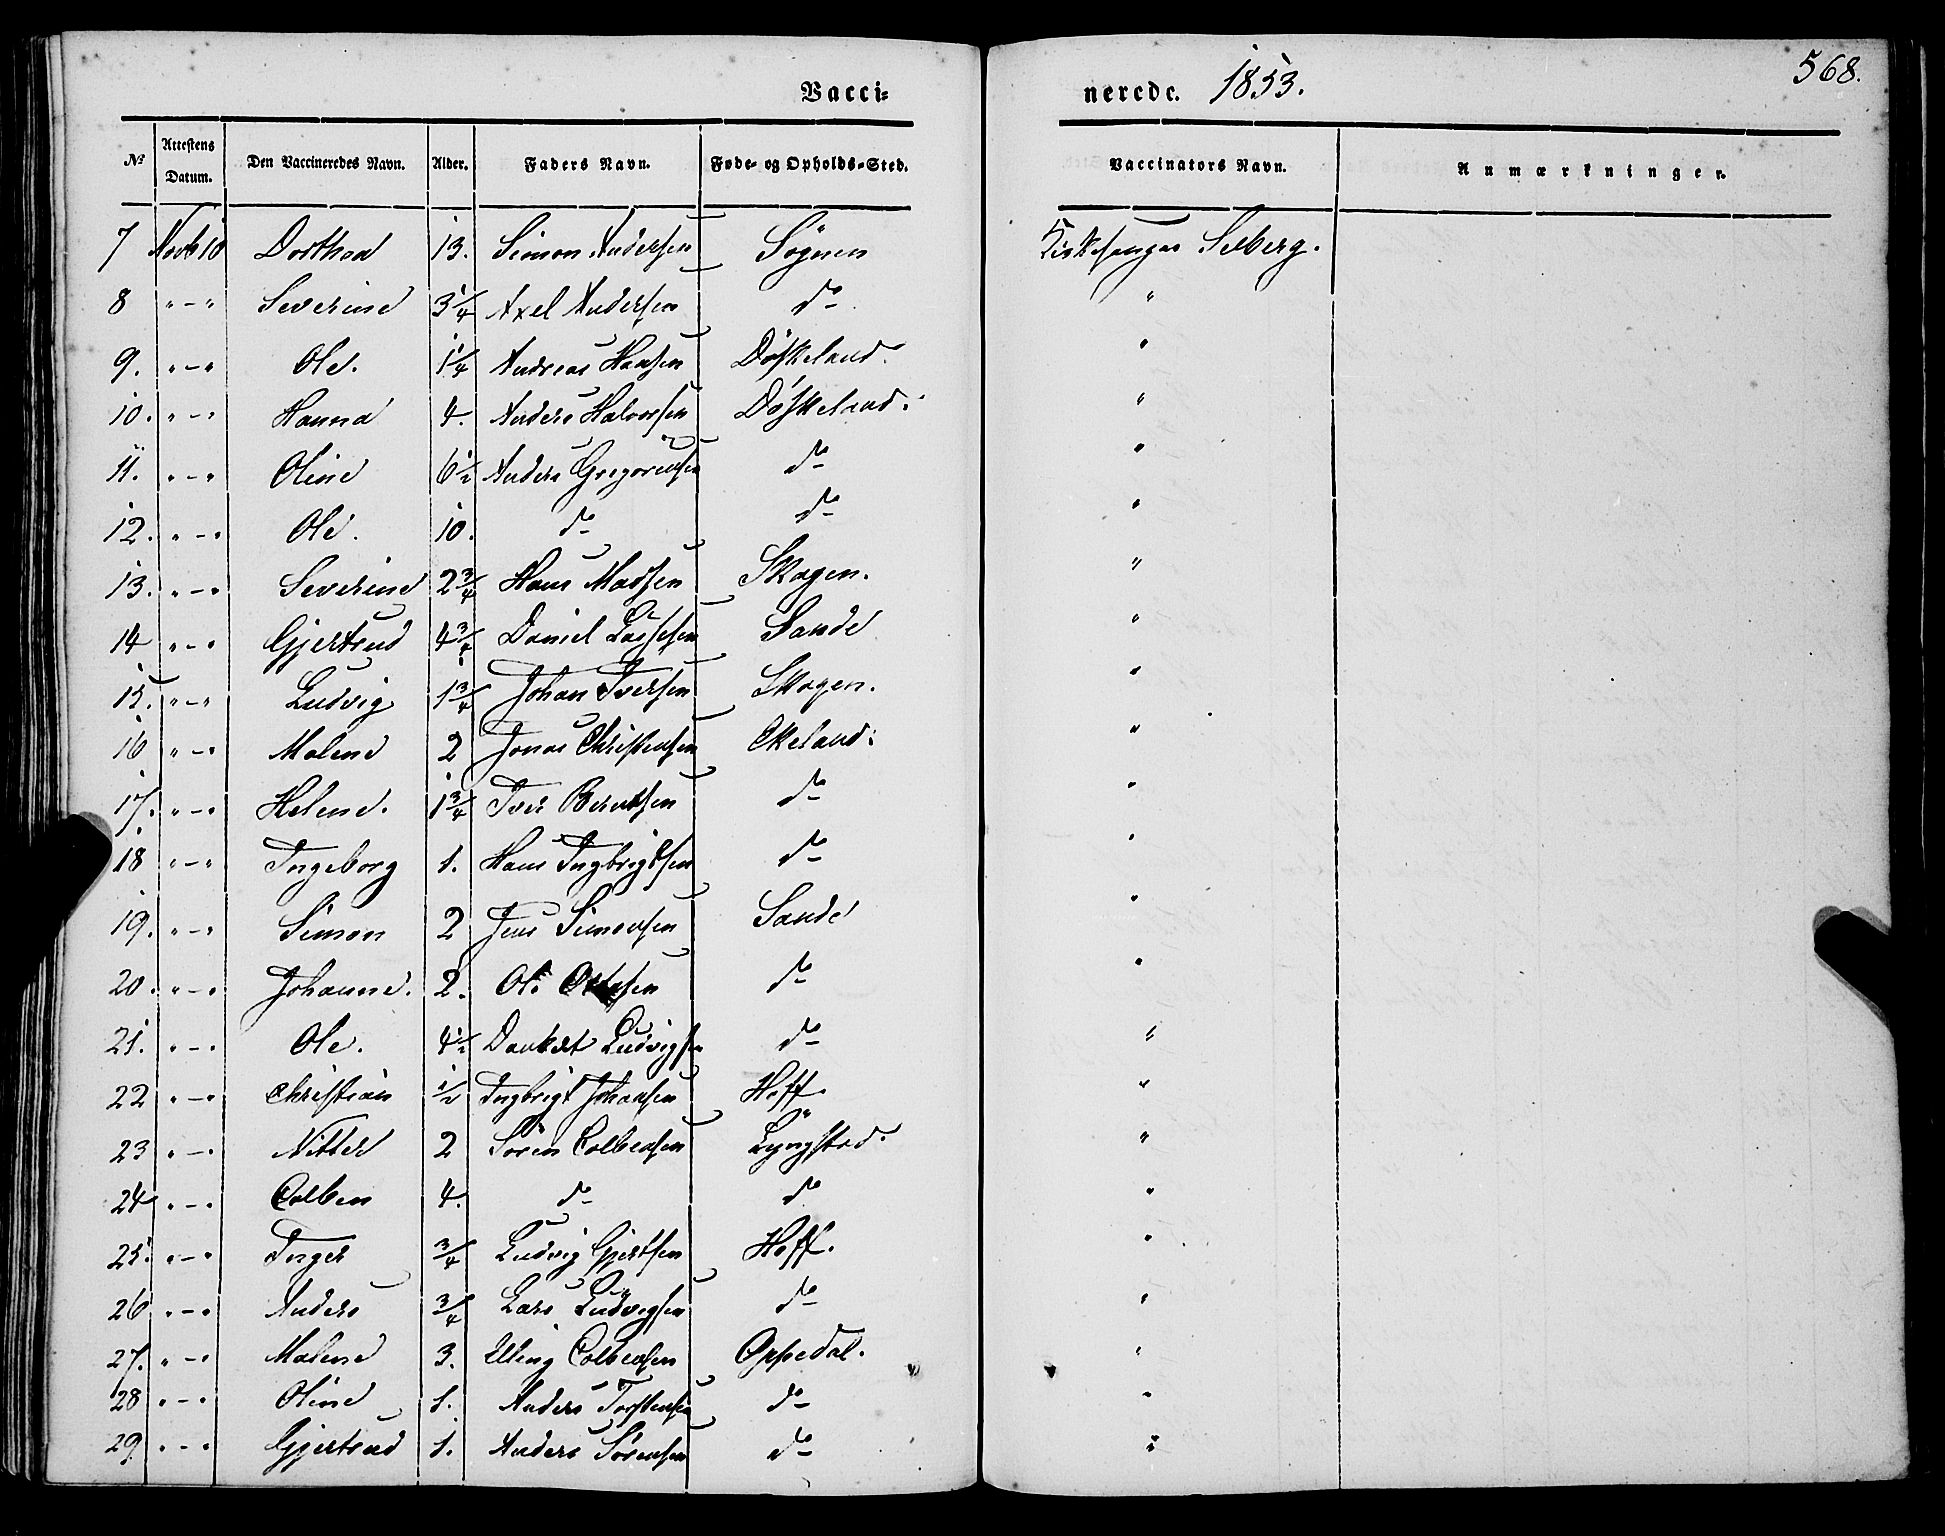 568.
Vacci= nerede. 1853.
No Attestens Datum. Den Vaccineredes Navn. Alder. Faders Navn. Føde- og Opholds-Sted. Vaccinators Navn. Anmærkninger.
7 Novb 10 Dorthea 13. Simon Andersen Søgnen Kirkesanger Selberg.
8 " - " Severine 3 1/4 Axel Andersen do "
9. " - " Ole. 1 1/4 Andreas Hansen Døskeland. "
10. " - " Hanna 4. Anders Halvorsen Døskeland. "
11. " - " Oline 6 1/2 Anders Gregoriusen do "
12. " - " Ole. 10. do do "
13. " - " Severine 2 3/4 Hans Madsen Skogen. "
14 " - " Gjertrud 4 3/4 Daniel Lassesen Sande "
15. " - " Ludvig 1 3/4 Johan Iversen Skogen. "
16 " - " Malene 2 Jonas Christensen Ekeland. "
17. " - " Helene. 1 3/4 Iver Berentsen do "
18 " - " Ingeborg 1. Hans Ingbrigtsen do "
19. " - " Simon 2 Jens Simonsen Sande "
20. " - " Johanne. 2. Ole do "
21. " - " Ole. 4 1/2 Dankert Ludvigsen do "
22 " - " Christian 1/2 Ingbrigt Johansen Hoff. "
23 " - " Nitter 2 Søren Colbensen Lyngstad. "
24 " - " Colben 4. do do "
25. " - " Inger 3/4 Ludvig Gjertsen Hoff. "
26 " - " Anders 3/4 Lars Ludvigsen do "
27. " - " Malene 3. Elling Colbensen Oppedal. "
28 " - " Oline 1. Anders Torstensen do "
29. " - " Gjertrud 1. Anders Sørensen do "